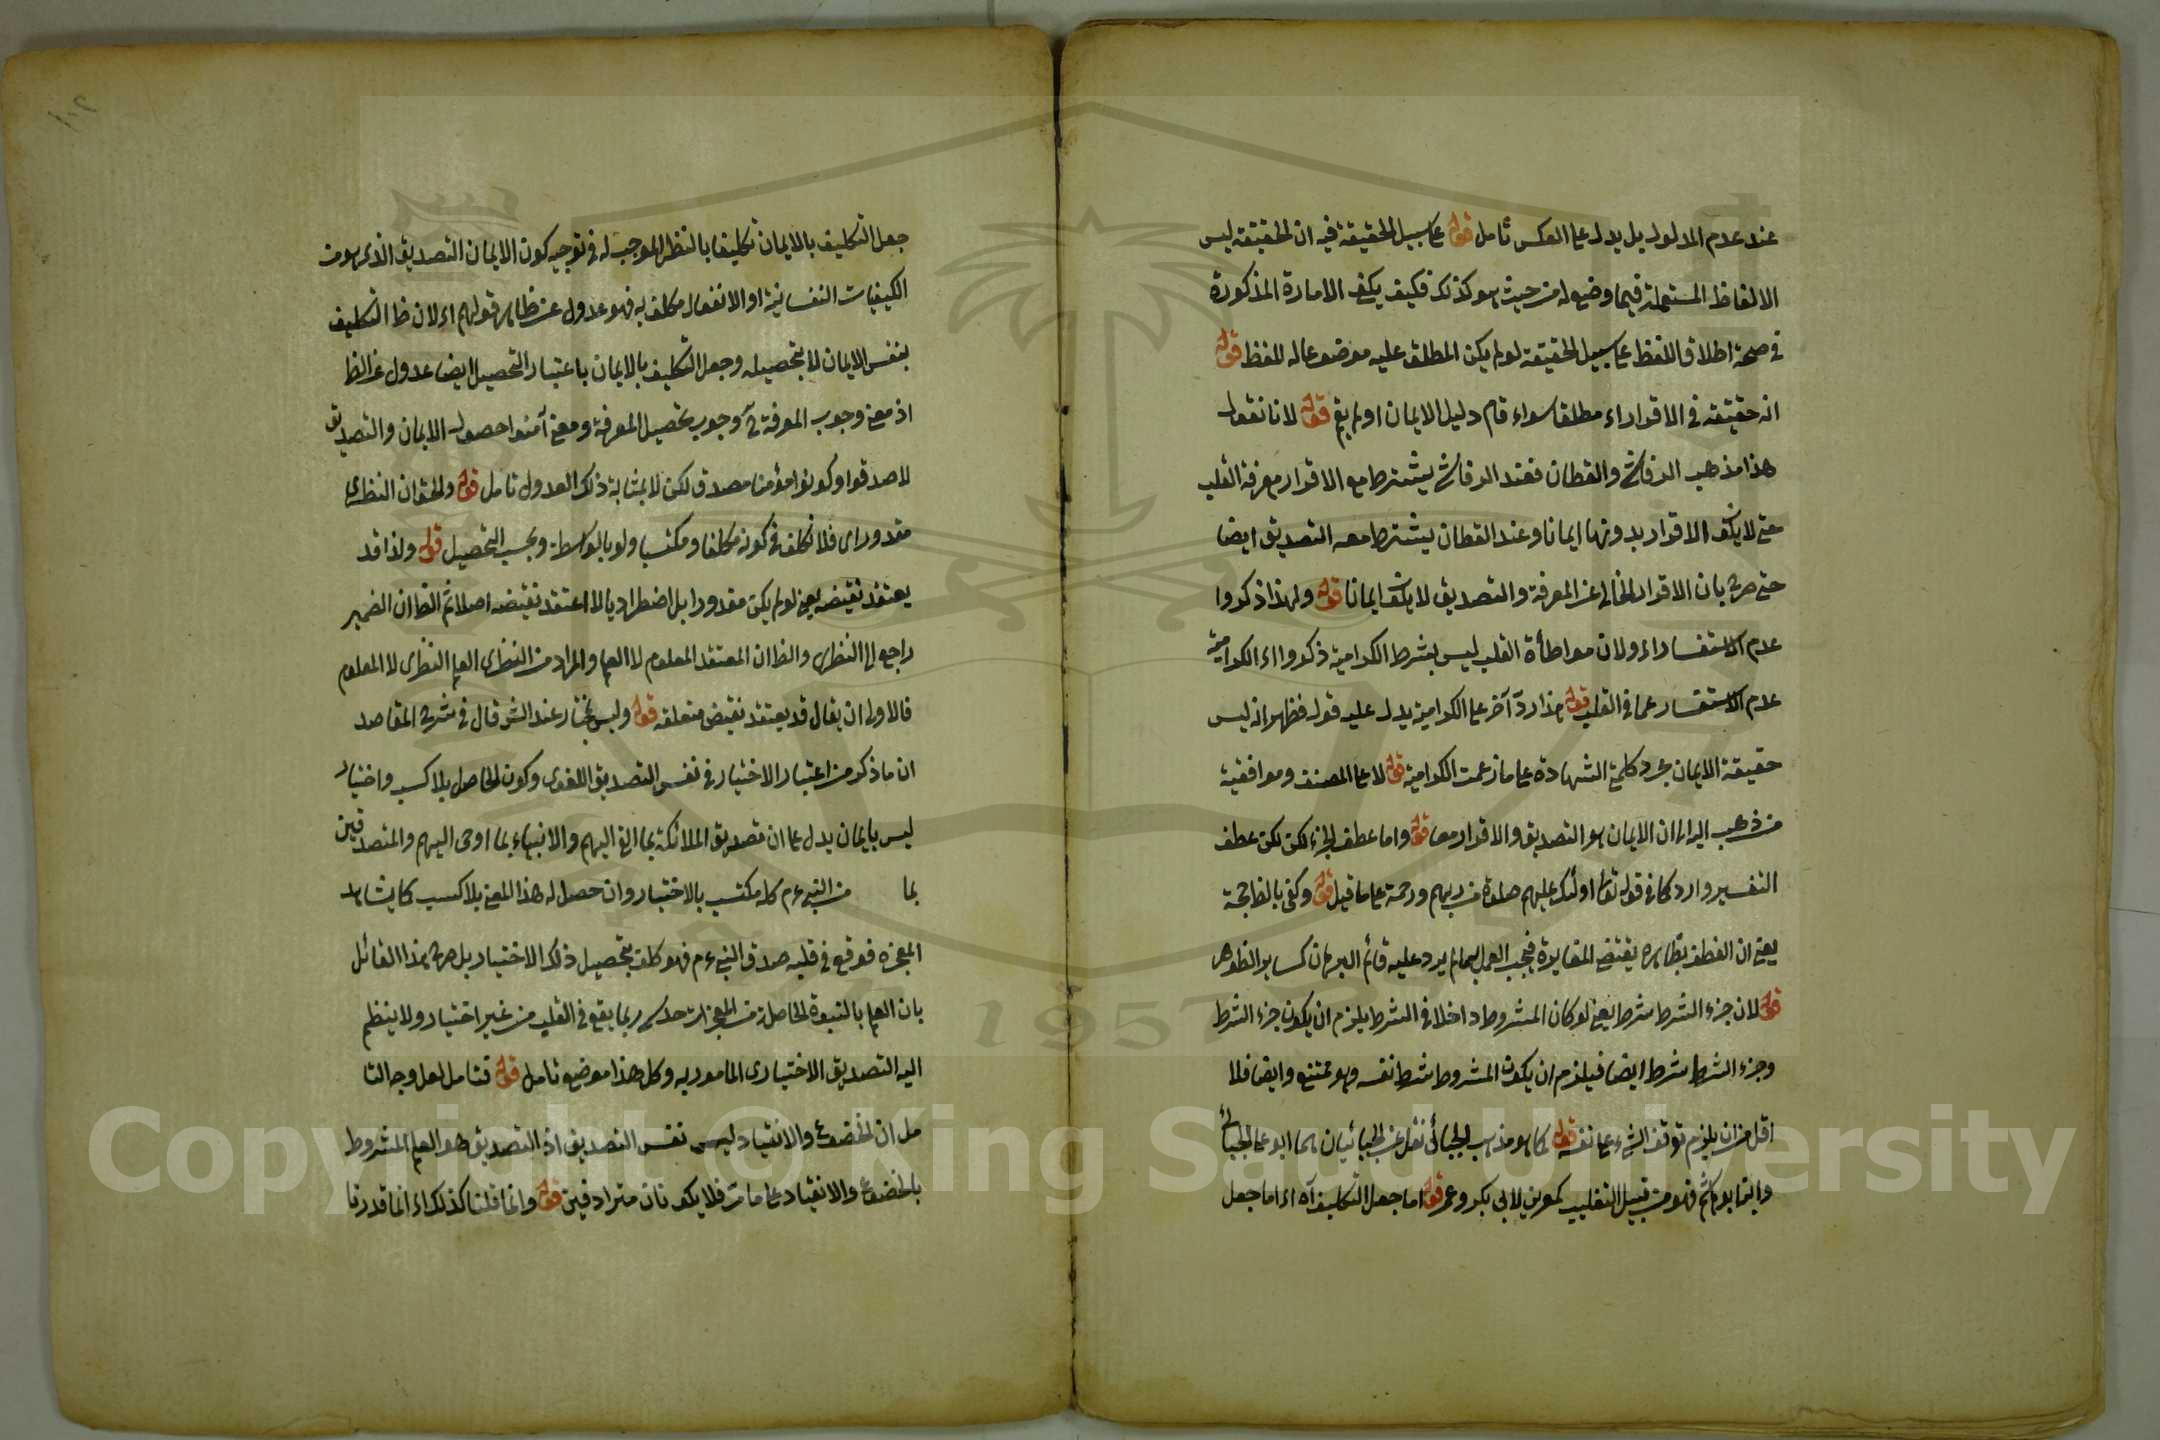 عند عدم المدلول بل يدل على العكس تأمل قوله على سبيل الحقيقة فيه ان الحقيقة ليس
الالفاظ المستعملة فيما وضع له من حيث هو كذلك فكيف يكفي الامارة المذكورة
في صحة اطلاق اللفظ على سبيل الحقيقة لو لم يكن المطلق عليه موضوعا له للفظ قوله
انه حقيقة في الاقرار اى مطلقا سواء قام دليل الايمان او لم يقم قوله لانا نقول
هذا مذهب الرقاشي والقطان فعند الرقاشي يشترط مع الاقرار معرفة القلب
حتى لا يكون الاقرار بدونها ايمانا وعند القطان يشترط معه التصديق ايضا
حتى صرح بان الاقرار الخالي عن المعرفة والتصديق لا يكون ايمانا قوله ولهذا ذكروا
عدم الاستفسار اى ولان مواطأة القلب ليس بشرط الكرامية ذكروا اى الكرامية
عدم الاستفسار عما في القلب قوله هذا رد آخر على الكرامية يدل عليه قوله فظهر انه ليس
حقيقة الايمان مجرد كلمة الشهادة على ما زعمت الكرامية قوله لا على المصنف وموافقيه
من ذهب الى ان الايمان هو التصديق والاقرار معا قوله واما عطف الجزء لكن لكن عطف
التفسير وارد كما في قوله تعالى اولئك عليهم صلوة من ربهم ورحمة على ما قيل قوله وكفى بالظاهر حجة
يعني ان العطف بظاهره يقتضي المغايرة فيجب العمل بهما لم يرد عليه قائم البرهان كسائر الظواهر
قوله لان جزء الشرط شرط يعني لو كان المشروط داخلا في الشرط يلزم ان يكون جزء الشرط
وجزء الشرط شرط ايضا فيلزم ان يكون المشروط شرط نفسه وهو ممتنع وايضا فلا
اقل من ان يلزم توقف الشيء على نفسه قوله كما هو مذهب الجبائي نقل عن الجبائيان هما ابو على الجبائي
وابنه ابو هاشم فهو من قبيل التغليب كعمرين لابي بكر وعمر قوله اما جعل التكليف آه اى اما جعل
١٠٢
جعل التكليف بالايمان تكليفا بالنظر الموجب له في توجيه كون الايمان التصديق الذى هو من
الكيفيات النفسانية او الانفعال مكلف به فهو عدول عن ظاهر قولهم اى لان ظ التكليف
بنفس الايمان لا بتحصيله وجعل التكليف بالايمان باعتبار التحصيل ايضا عدول عن الظ
اذ معنى وجوب المعرفة وجوب تحصيل المعرفة ومعنى آمنوا حصول الايمان والتصديق
لا صدقوا وكونوا مؤمنا مصدق لكن لا بمثابة ذلك العدول تامل قوله والحق ان النظرى
مقدور اى فلا تكلف في كونه مكلفا ومكتسبا ولو بالواسطة وبحسب التحصيل قوله ولذا قد
يعتقد نقيضه يعني لو لم يكن مقدورا بل اضطراريا لا اعتقد نقيضه اصلا ثم الظ ان الضمير
راجع الى النظرى والظ ان المعتقد المعلوم لا العلم والمراد من النظرى العلم النظرى لا المعلوم
فالاولى ان يقال قد يعتقد نقيض متعلقه قوله وليس بمختار عند الش قال في شرح المقاصد
ان ما ذكر من اعتبار الاختيار في نفس التصديق اللغوى وكون الحاصل بلا كسب واختيار
ليس بايمان يدل على ان تصديق الملائكة بما القي اليهم والانبياء بما اوحى اليهم والمتصدقين
بما من النبي ءم كله مكتسب بالاختيار وان حصل له هذا المعنى بلا كسب كما يشاهد
المعجزة فوقع في قلبه صدق النبي ءم فهو كلف بتحصيل ذلك الاختيار بل صرح هذا القائل
بان العلم بالنبوة الحاصلة من المعجزات حدسى ربما يقع في القلب من غير اختيار ولا ينظم
اليه التصديق الاختيارى المامور به وكل هذا موضع تامل قوله فتامل لعل وجه التا
مل ان الخضوع والانقياد ليس نفس التصديق اذ التصديق هو العلم المشروط
بالخضوع والانقياد على ما مر فلا يكونان مترادفين قوله وانما قلنا كذلك اى انما قدرنا